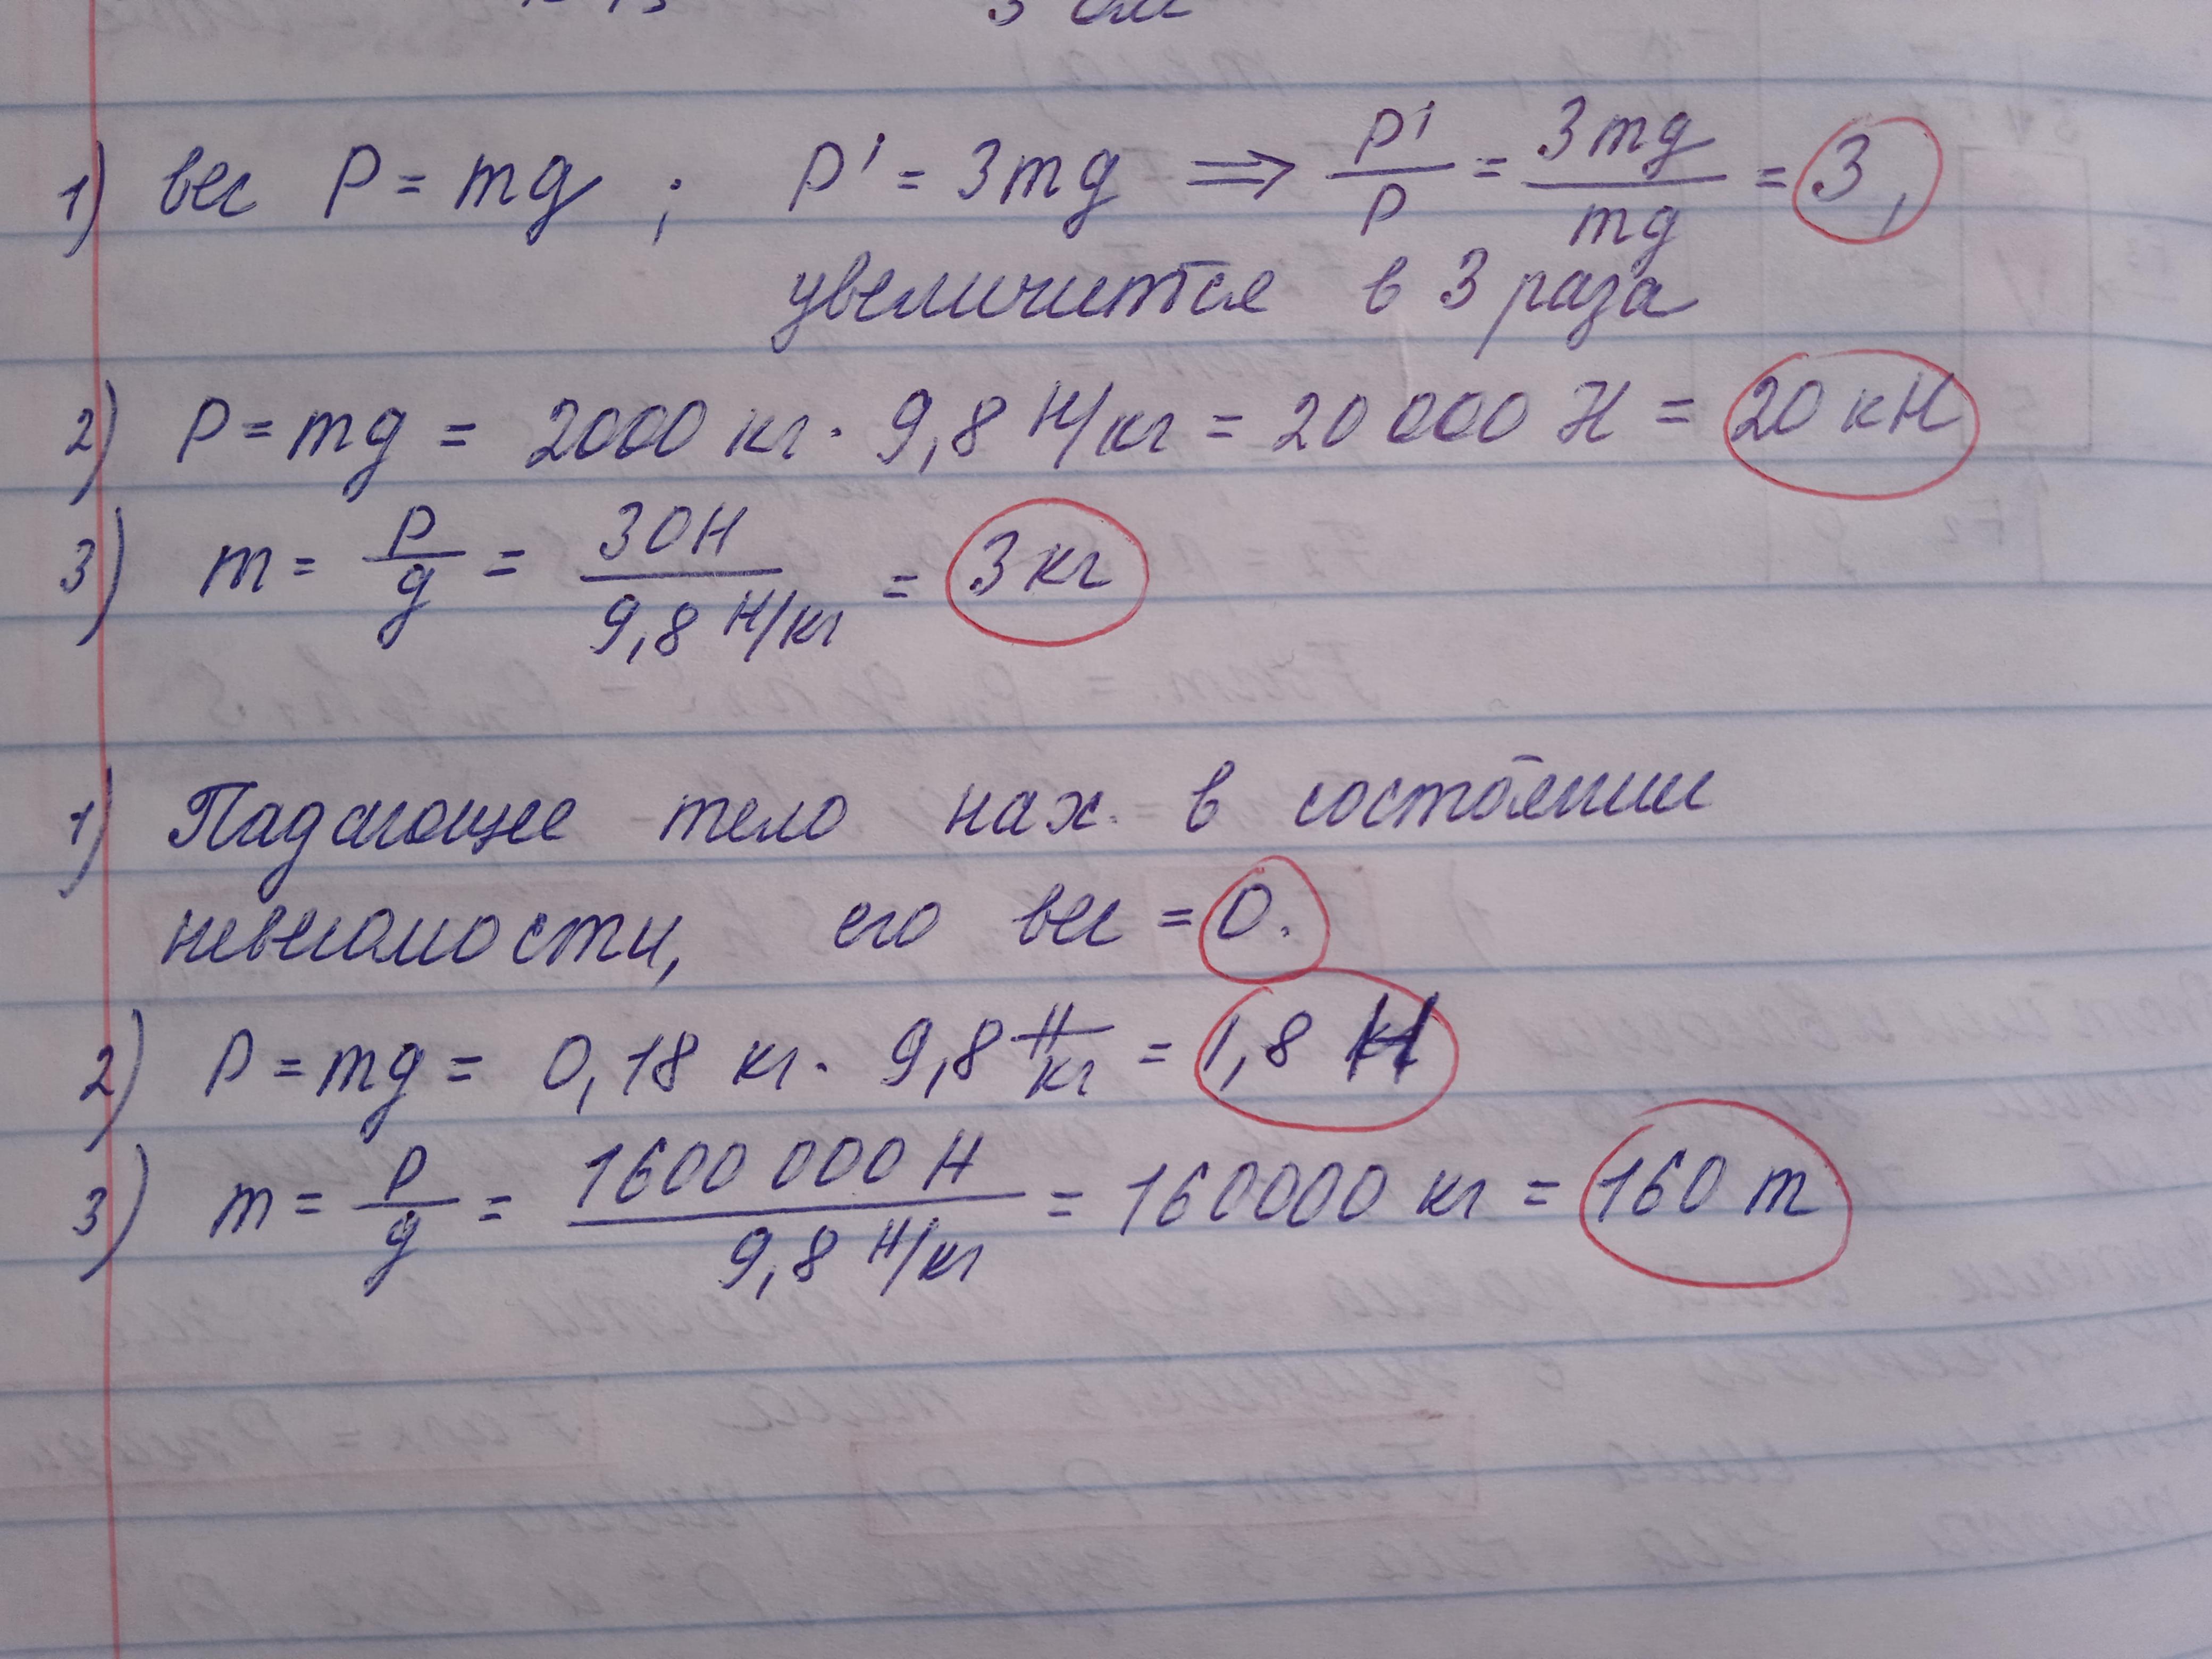 3 см
1) вес P = mg ; P' = 3mg ⟹ P'/P = 3mg/mg = 3,
увеличится в 3 раза
2) P = mg = 2000 кг · 9,8 Н/кг = 20 000 Н = 20 кН
3) m = P/g = 30Н / 9,8 Н/кг = 3 кг
1) Падающее тело нах. в состоянии
невесомости, его вес = 0.
2) P = mg = 0,18 кг · 9,8 Н/кг = 1,8 Н
3) m = P/g = 1600 000 Н / 9,8 Н/кг = 160000 кг = 160 т